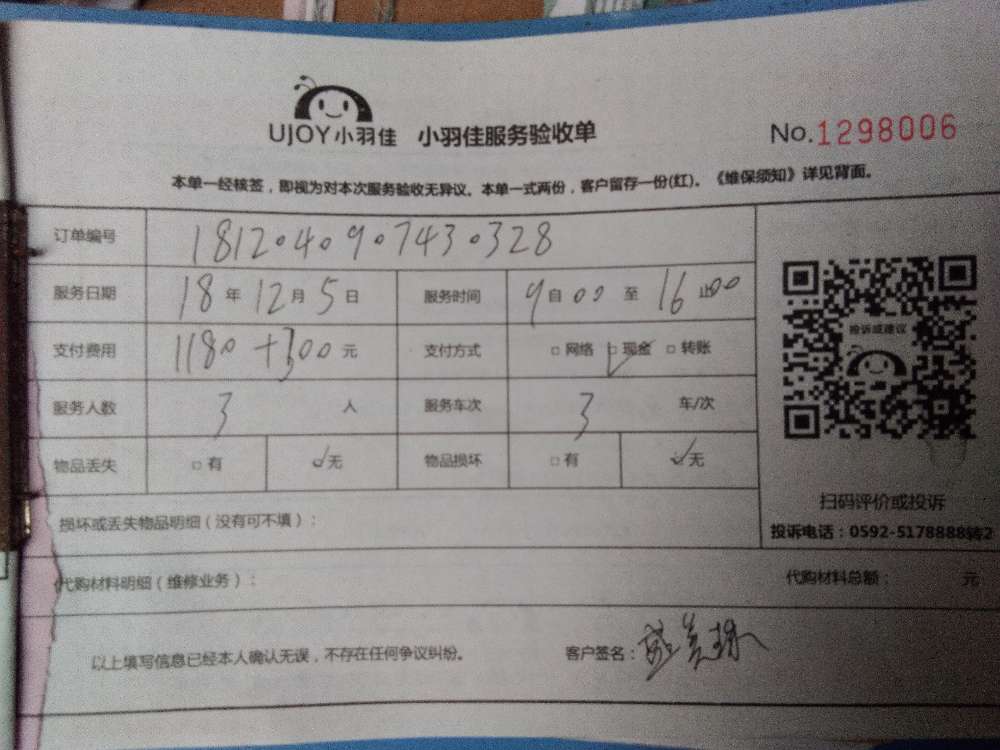 UJOY小羽佳 小羽佳服务验收单 No.1298006
本单一经核签，即视为对本次服务验收无异议。本单一式两份，客户留存一份(红)。《维保须知》详见背面。
订单编号 1812040907430328
服务日期 18年12月5日 服务时间 9自00至16止00
支付费用 1180+300元 支付方式 □网络 □现金 □转账
服务人数 3人 服务车次 3车/次
物品丢失 □有 ☑无 物品损坏 □有 ☑无
投诉或建议
扫码评价或投诉
投诉电话：0592-5178888转2
损坏或丢失物品明细（没有可不填）：
代购材料明细（维修业务）： 代购材料总额： 元
以上填写信息已经本人确认无误，不存在任何争议纠纷。 客户签名：